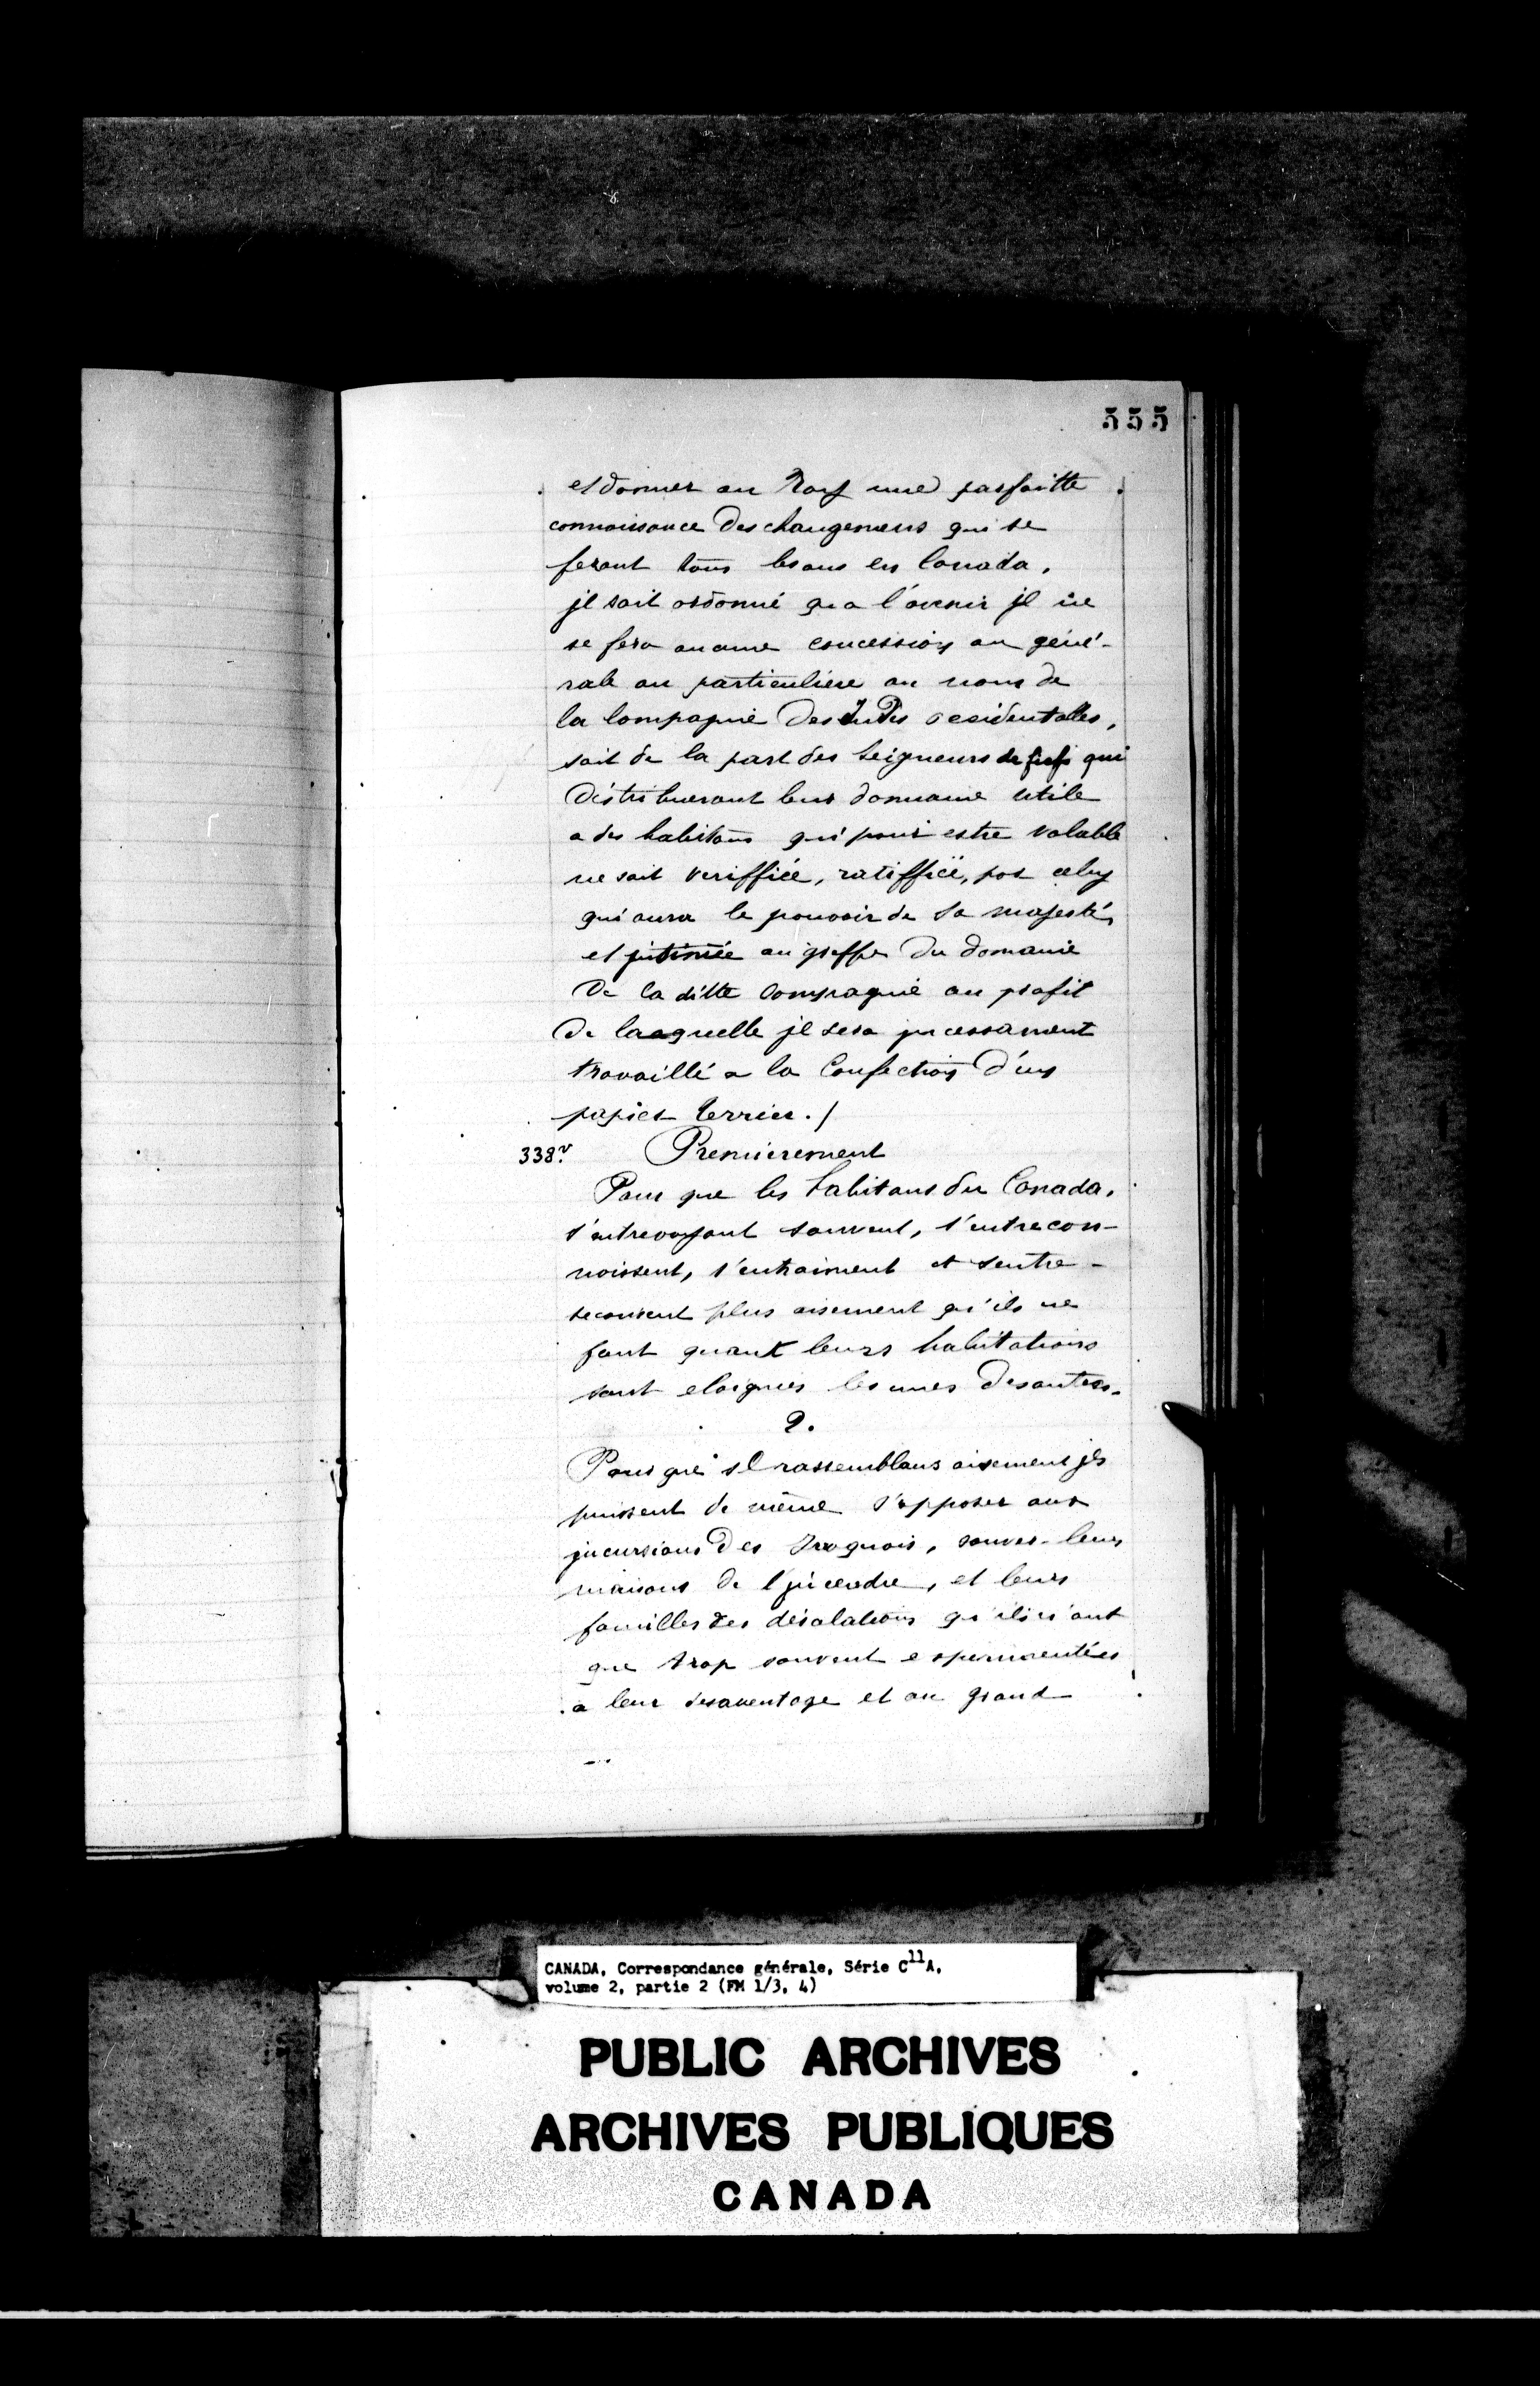 555
et donner au Roy une parfaitte
connoissance des changemens qui se
feront tous les ans en Canada.
jl soit ordonné qu a l'avenir jl ne
se fera aucune concession ou géné-
rale ou particuliere au nom de
la Compagnie des Indes occidentalles,
soit de la part des seigneurs de fiefs qui
distribueront leur domaine utile
a des habitans qui pour estre valable
ne soit veriffiée, ratiffiëe, par celuy
qui aura le pouvoir de Sa majesté,
et jntimée au greffe du domaine
De la ditte Compagnie au profit
De laquelle jl sera jncessament
travaillé a la Confection d'un
papier terrier. /
338v. Premierement
Pour que les habitans du Canada,
s'entrevoyant souvent, s'entrecon-
noissent, s'entraiment et sentre-
secourent plus aisement qu'ils ne
font quant leurs habitations
sont eloignées les unes des autres.
2.
Pour que se rassemblans aisement jls
puissent de même s'opposer aux
jncursions Des Iroquois, sauver leurs
maisons de l'jncendie, et leurs
familles des désolations qu'ils n'ont
que trop souvent esperimentées
a leur desaventage et au grand
CANADA, Correspondance générale, Série C11A,
volume 2, partie 2 (FM 1/3, 4)
PUBLIC ARCHIVES
ARCHIVES PUBLIQUES
CANADA